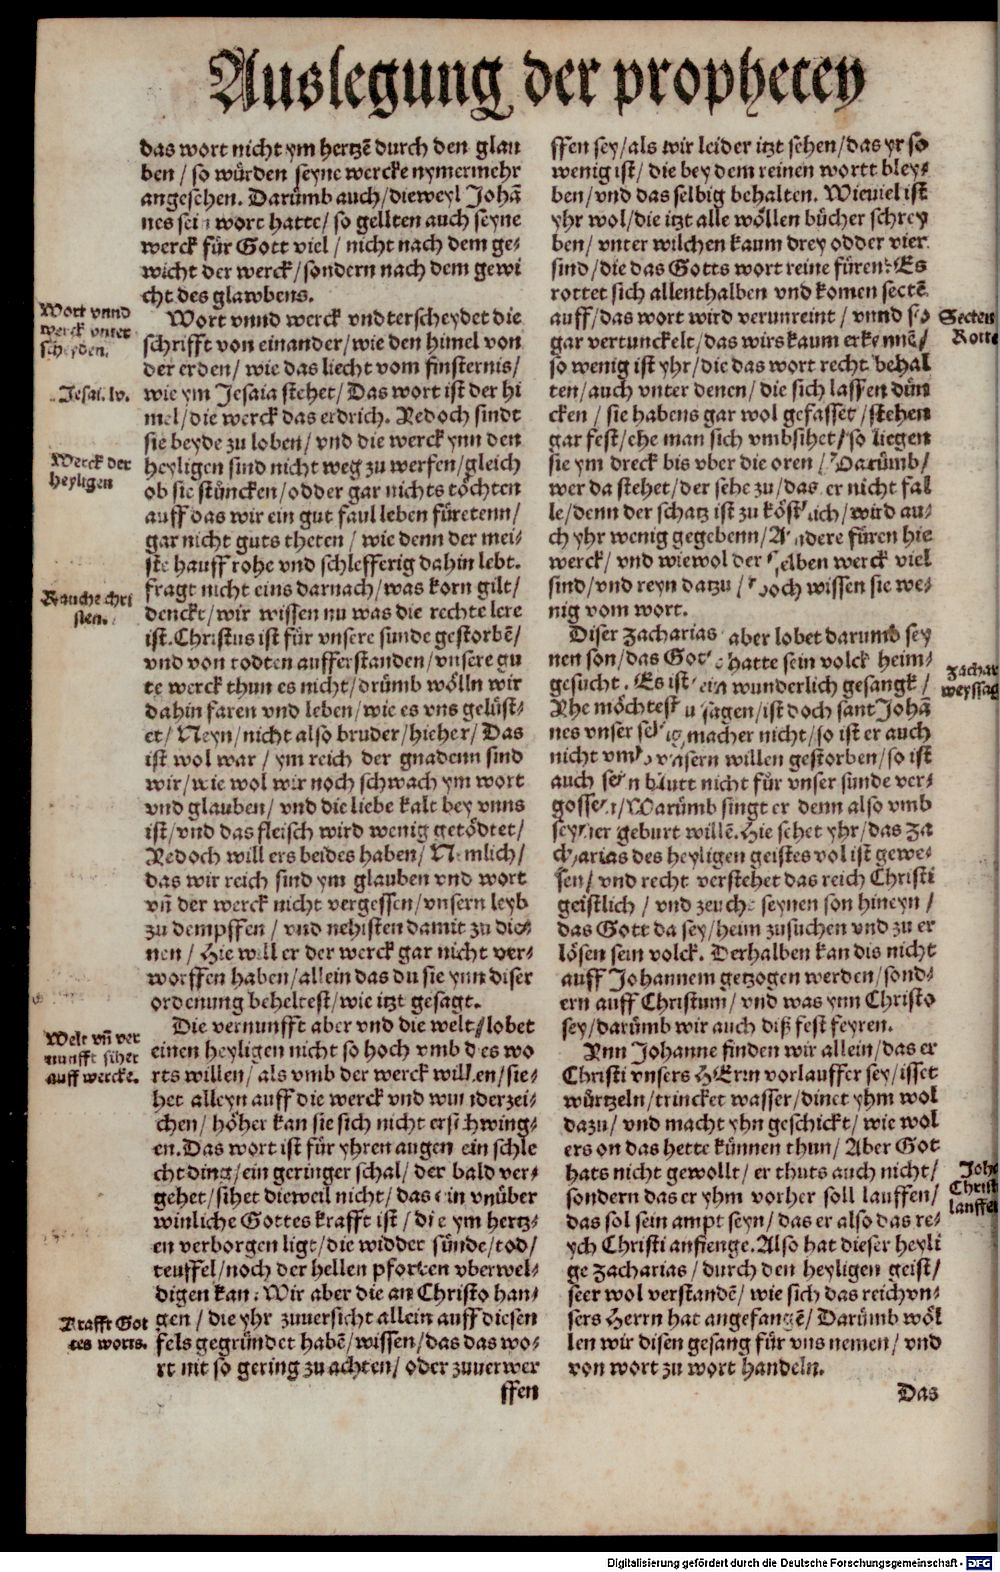 Auslegung der prophecey
das wort nicht ym hertzē durch den glau
ben / so würden seyne wercke nymermehr
angesehen. Darümb auch / dieweyl Johā
nes sein wort hatte / so gellten auch seyne
werck für Gott viel / nicht nach dem ge-
wicht der werck / sondern nach dem gewi
cht des glawbens.
Wort vnnd
werck vnter
scheyden.
Wort vnnd werck vndterscheydet die
schrifft von einander / wie den himel von
der erden / wie das liecht vom finsternis /
Jesai. lv.
wie ym Jesaia stehet / Das wort ist der hi
mel / die werck das erdrich. Redoch sindt
sie beyde zu loben / vnd die werck ynn den
Werck der
heyligen
heyligen sind nicht weg zu werfen / gleich
ob sie stüncken / odder gar nichts töchten
auff das wir ein gut faul leben füretenn /
gar nicht guts theten / wie denn der mei-
ste hauff rohe vnd schlefferig dahin lebt.
Rauche chri
sten.
fragt nicht eins darnach / was korn gilt /
denckt / wir wissen nu was die rechte lere
ist. Christus ist für vnsere sunde gestorbē /
vnd von todten aufferstanden / vnsere gu
te werck thun es nicht / drümb wölln wir
dahin faren vnd leben / wie es vns gelüst-
et / Neyn / nicht also bruder / hieher / Das
ist wol war / ym reich der gnadenn sind
wir / wie wol wir noch schwach ym wort
vnd glauben / vnd die liebe kalt bey vnns
ist / vnd das fleisch wird wenig getödtet /
Redoch will ers beides haben / Nemlich /
das wir reich sind ym glauben vnd wort
vn̄ der werck nicht vergessen / vnsern leyb
zu dempffen / vnd nehisten damit zu die-
nen / Hie will er der werck gar nicht ver-
worffen haben / allein das du sie ynn diser
ordenung beheltest / wie itzt gesagt.
Welt vn̄ ver
nunfft siher
auff wercke.
Die vernunfft aber vnd die welt / lobet
einen heyligen nicht so hoch vmb des wo
rts willen / als vmb der werck willen / sie-
het alleyn auff die werck vnd wunderzei-
chen / höher kan sie sich nicht erschwing-
en. Das wort ist für yhren augen ein schle
cht ding / ein geringer schal / der bald ver-
gehet / sihet dieweil nicht / das ein vnüber
winliche Gottes krafft ist / die ym hertz-
en verborgen ligt / die widder sünde / tod /
teuffel / noch der hellen pforten vberwel-
digen kan. Wir aber die an Christo han-
Krafft Got
tes worts.
gen / die yhr zuuersicht allein auff diesen
fels gegründet habē / wissen / das das wo-
rt nit so gering zu achten / oder zuuerwer
ffen
ffen sey / als wir leider itzt sehen / das yr so
wenig ist / die bey dem reinen wortt bley-
ben / vnd das selbig behalten. Wieuiel ist
yhr wol / die itzt alle wöllen bücher schrey
ben / vnter wilchen kaum drey odder vier
sind / die das Gotts wort reine füren. Es
rottet sich allenthalben vnd komen sectē
Secten
Rotte
auff / das wort wird verunreint / vnnd so
gar vertunckelt / das wirs kaum erkennē /
so wenig ist yhr / die das wort recht behal
ten / auch vnter denen / die sich lassen dün
cken / sie habens gar wol gefasset / stehen
gar fest / ehe man sich vmbsihet / so liegen
sie ym dreck bis vber die oren / Darümb /
wer da stehet / der sehe zu / das er nicht fal
le / denn der schatz ist zu köstlich / wird au-
ch yhr wenig gegebenn / Andere füren hie
werck / vnd wiewol der selben werck viel
sind / vnd reyn datzu / doch wissen sie we-
nig vom wort.
Diser Zacharias aber lobet darumb sey
nen son / das Got hatte sein volck heim-
Zachar
weyssag
gesucht. Es ist ein wunderlich gesangk /
Rhe möchtest du sagen / ist doch sant Johā
nes vnser seligmacher nicht / so ist er auch
nicht vmb vnsern willen gestorben / so ist
auch sein blutt nicht für vnser sunde ver-
gossen / Warümb singt er denn also vmb
seyner geburt willē. Hie sehet yhr / das Za
charias des heyligen geistes vol ist gewe-
sen / vnd recht verstehet das reich Christi
geistlich / vnd zeucht seynen son hineyn /
das Gott da sey / heim zusuchen vnd zu er
lösen sein volck. Derhalben kan dis nicht
auff Johannem getzogen werden / sond-
ern auff Christum / vnd was ynn Christo
sey / darümb wir auch diß fest feyren.
Ynn Johanne finden wir allein / das er
Christi vnsers HErrn vorlauffer sey / isset
würtzeln / trincket wasser / dinet yhm wol
dazu / vnd macht yhn geschickt / wie wol
ers on das hette künnen thun / Aber Got
Joh
Christ
lauffer
hats nicht gewollt / er thuts auch nicht /
sondern das er yhm vorher soll lauffen /
das sol sein ampt seyn / das er also das re-
ych Christi anfienge. Also hat dieser heyli
ge Zacharias / durch den heyligen geist /
seer wol verstandē / wie sich das reich vn-
sers Herrn hat angefangē / Darümb wöl
len wir disen gesang für vns nemen / vnd
von wort zu wort handeln.
Das
Digitalisierung gefördert durch die Deutsche Forschungsgemeinschaft - DFG